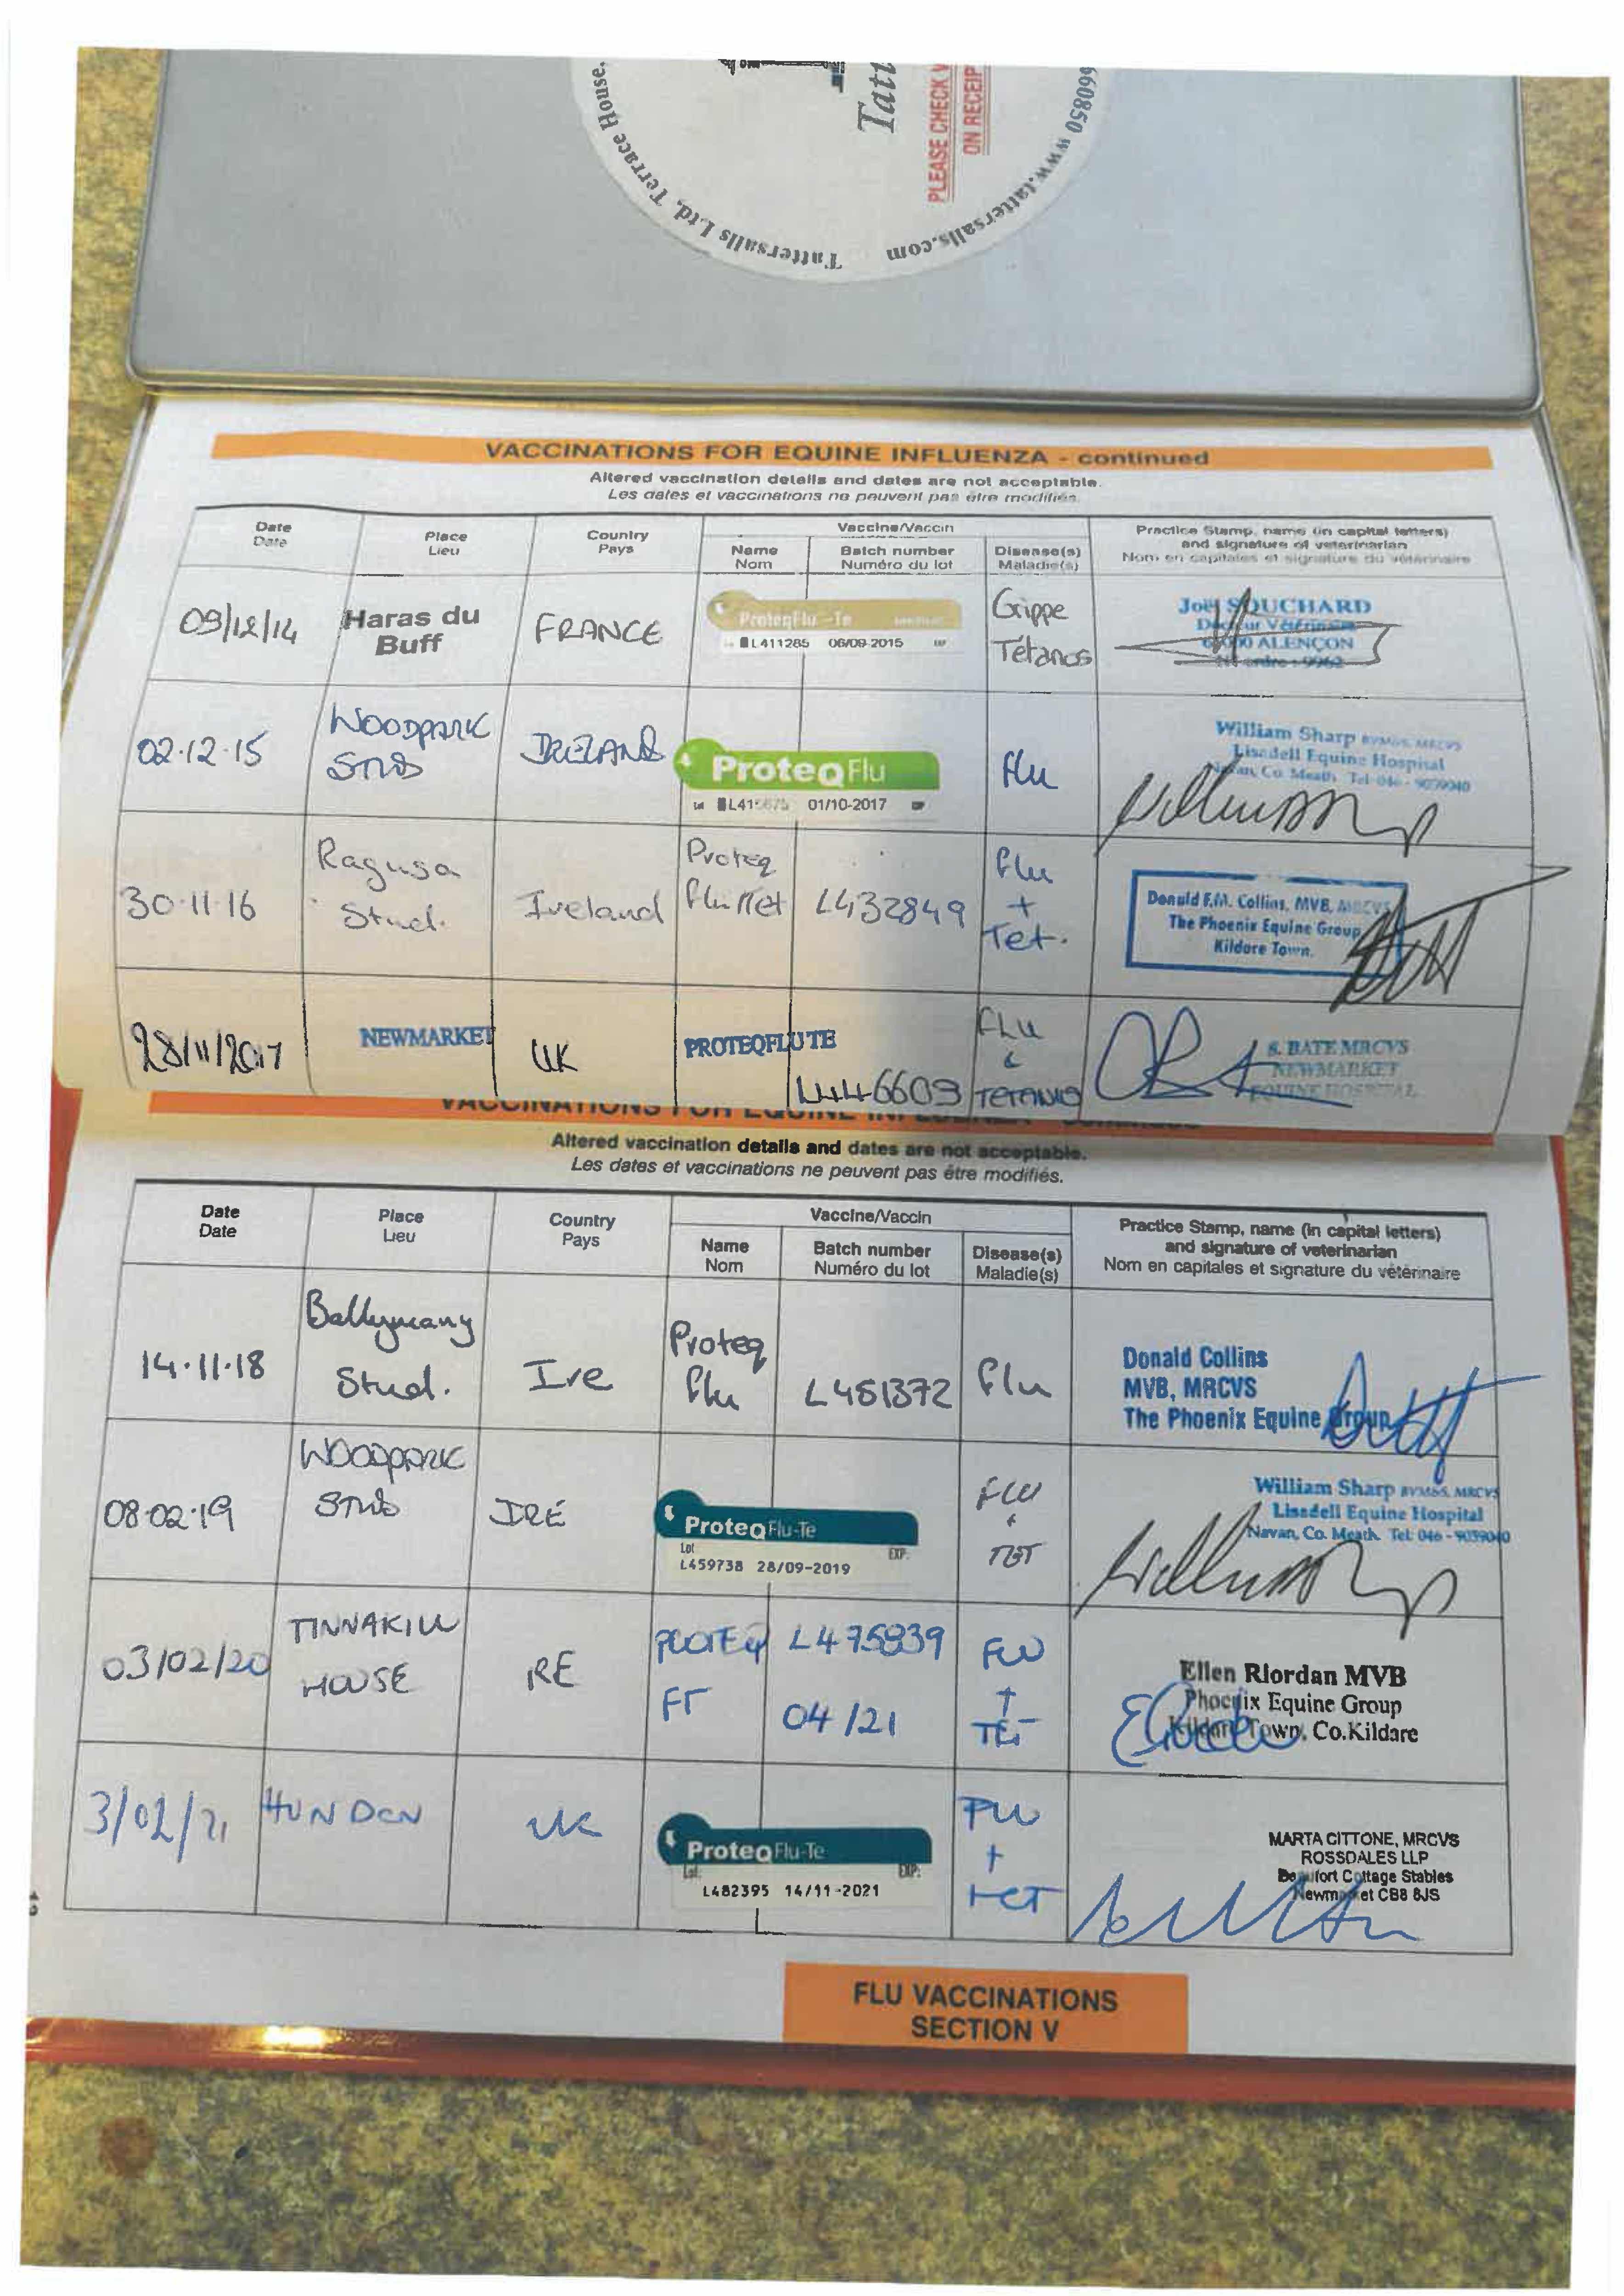 Tattersalls Ltd, Terrace House,
660850 www.tattersalls.com
PLEASE CHECK
ON RECEIP
VACCINATIONS FOR EQUINE INFLUENZA - continued
Altered vaccination details and dates are not acceptable.
Les dates et vaccinations ne peuvent pas être modifiés.
Date
Date
Place
Lieu
Country
Pays
Vaccine/Vaccin
Name
Nom
Batch number
Numéro du lot
Disease(s)
Maladie(s)
Practice Stamp, name (in capital letters)
and signature of veterinarian
Nom en capitales et signature du vétérinaire
09/12/14
Haras du
Buff
FRANCE
ProteqFlu-Te
L411285 06/09-2015
Grippe
Tétanos
Joël SOUCHARD
Docteur Vétérinaire
ALENÇON
02.12.15
WOODPARK
STUD
IRELAND
ProteqFlu
01/10-2017
Flu
William Sharp BVM&S, MRCVS
Lisadell Equine Hospital
Navan, Co. Meath. Tel: 046 - 9059040
30.11.16
Ragusa
Stud.
Ireland
Proteq
Flu + Tet
L432849
Flu
+
Tet.
Donald F.M. Collins, MVB, MRCVS
The Phoenix Equine Group
Kildare Town.
28/11/2017
NEWMARKET
UK
PROTEQFLUTE
L446603
FLU
&
TETANUS
S. BATE MRCVS
NEWMARKET
EQUINE HOSPITAL
VACCINATIONS FOR EQUINE INFLUENZA - continued
Altered vaccination details and dates are not acceptable.
Les dates et vaccinations ne peuvent pas être modifiés.
Date
Date
Place
Lieu
Country
Pays
Vaccine/Vaccin
Name
Nom
Batch number
Numéro du lot
Disease(s)
Maladie(s)
Practice Stamp, name (in capital letters)
and signature of veterinarian
Nom en capitales et signature du vétérinaire
14.11.18
Ballymany
Stud.
Ire
Proteq
Flu
L451372
Flu
Donald Collins
MVB, MRCVS
The Phoenix Equine Group
08.02.19
WOODPARK
STUD
IRE
ProteqFlu-Te
Lot EXP:
L459738 28/09-2019
FLU
+
TET
William Sharp BVM&S, MRCVS
Lisadell Equine Hospital
Navan, Co. Meath. Tel: 046 - 9059040
03/02/20
TINNAKILL
HOUSE
IRE
PROTEQ
FT
L475939
04/21
FLU
+
TET
Ellen Riordan MVB
Phoenix Equine Group
Kildare Town, Co.Kildare
3/02/21
HUNDON
UK
ProteqFlu-Te
Lot: EXP:
L482395 14/11-2021
FLU
+
TET
MARTA CITTONE, MRCVS
ROSSDALES LLP
Beaufort Cottage Stables
Newmarket CB8 8JS
FLU VACCINATIONS
SECTION V